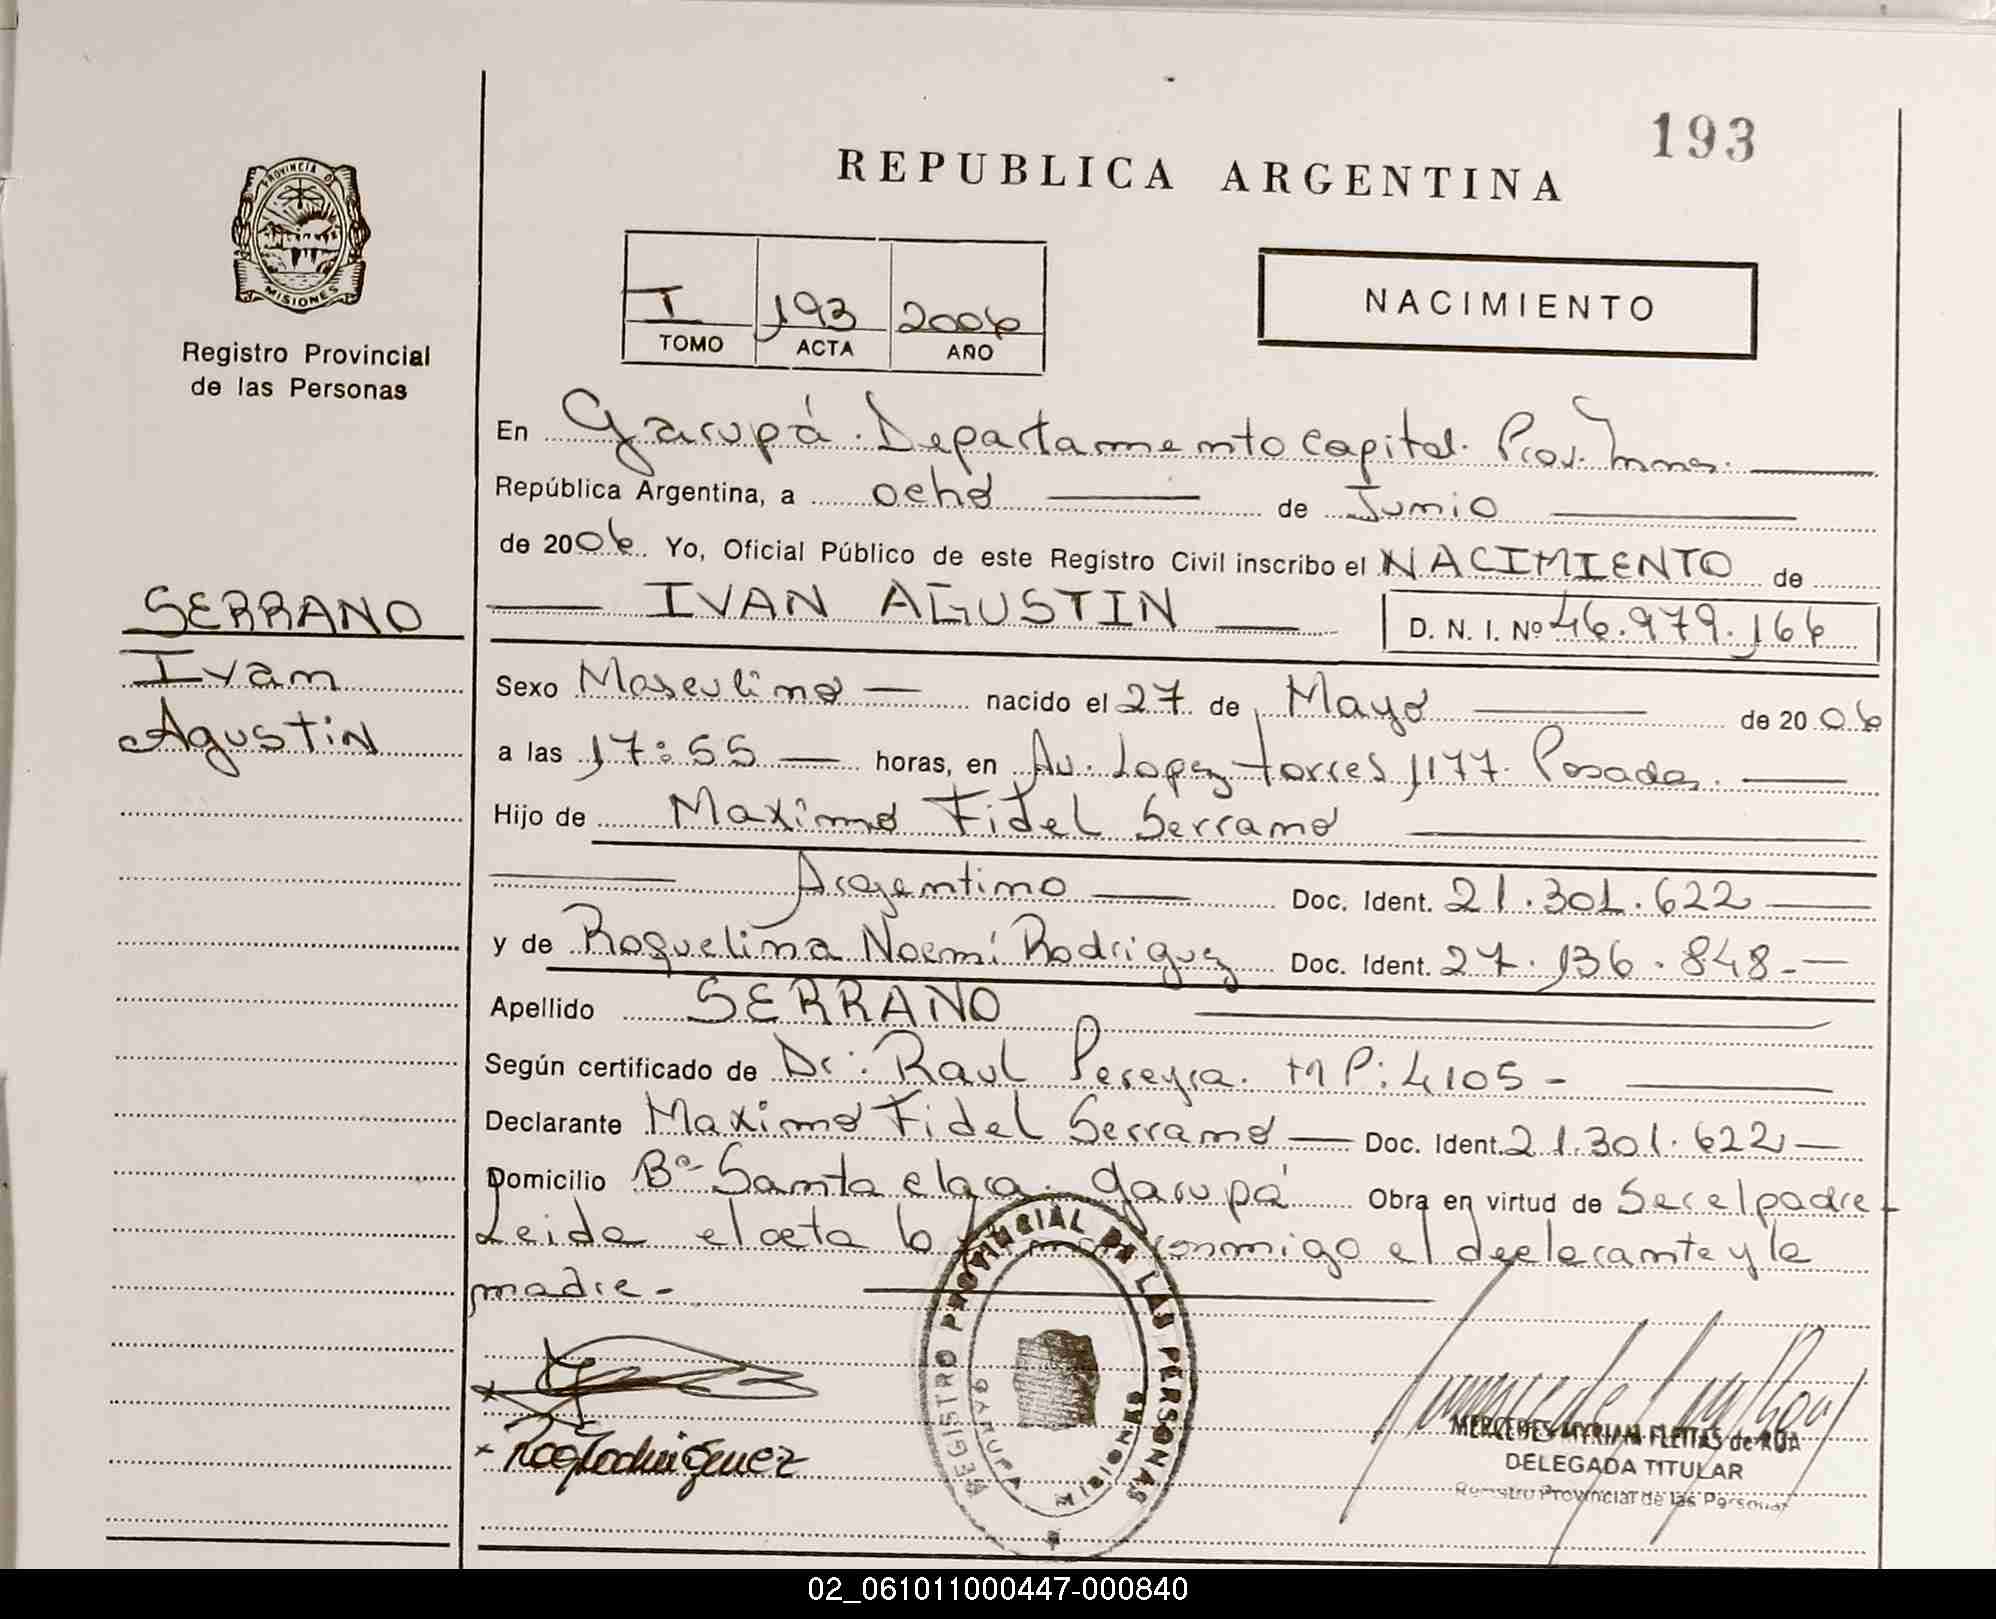 193
REPUBLICA ARGENTINA
PROVINCIA DE
MISIONES
Registro Provincial
de las Personas
I 193 2006
TOMO ACTA AÑO
NACIMIENTO
En Garupá. Departamento Capital. Prov. Mnes.
República Argentina, a ocho de Junio
de 2006 Yo, Oficial Público de este Registro Civil inscribo el NACIMIENTO de
IVAN AGUSTIN D. N. I. Nº 46.979.166
SERRANO
Ivan
Agustin
Sexo Masculino nacido el 27 de Mayo de 2006
a las 17:55 horas, en Av. Lopez Torres 1177. Posadas.
Hijo de Maximo Fidel Serrano
Argentino Doc. Ident. 21.301.622
y de Roquelina Noemí Rodriguez Doc. Ident. 27.136.848-
Apellido SERRANO
Según certificado de Dr: Raul Pereyra. MP: 4105-
Declarante Maximo Fidel Serrano Doc. Ident. 21.301.622
Domicilio Bº Santa Clara. Garupá Obra en virtud de Ser el padre
Leida el acta la conmigo el declarante y la
madre-
REGISTRO PROVINCIAL DE LAS PERSONAS
GARUPA MISIONES
x Roq Rodriguez
MERCEDES MYRIAM FLEITAS de ROA
DELEGADA TITULAR
Registro Provincial de las Personas
02_061011000447-000840